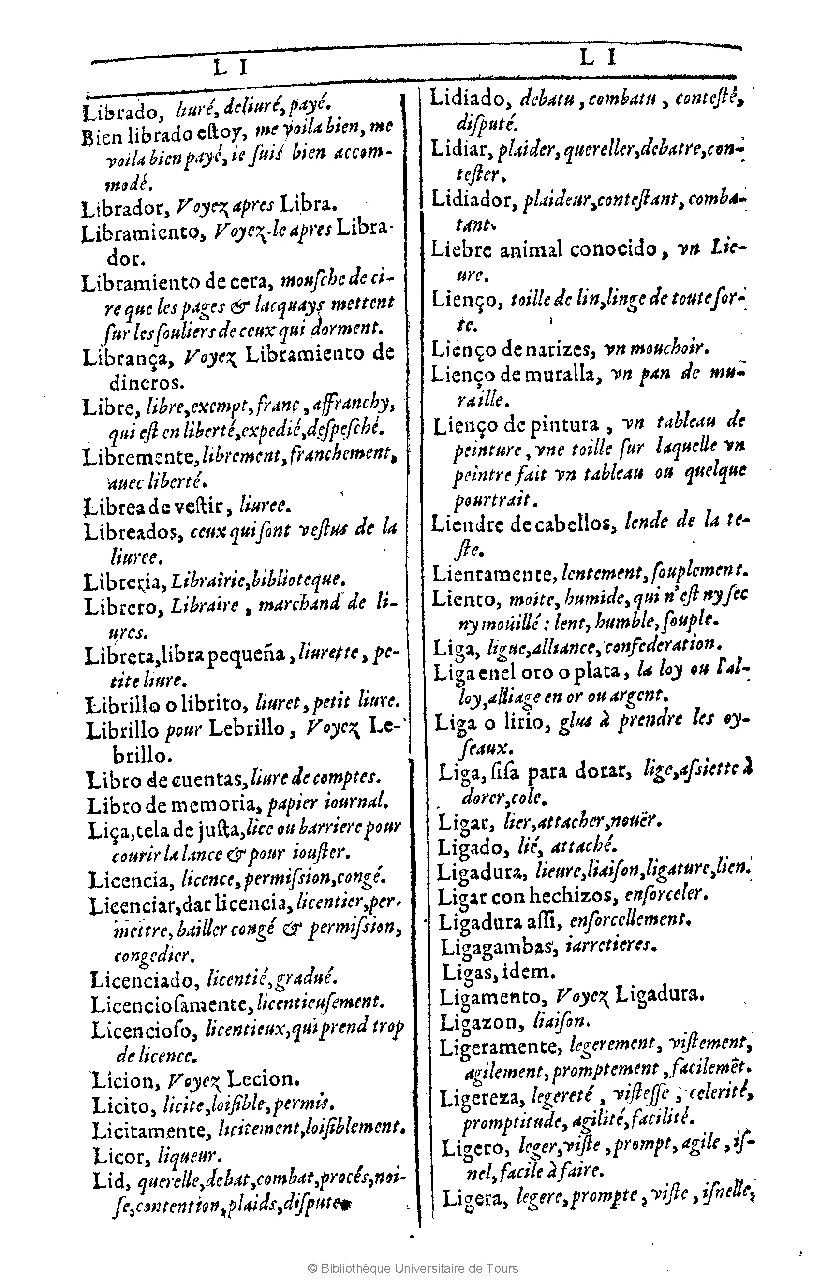 L I
Librado, liuré, deliuré, payé.
Bien librado eſtoy, me voila bien, me
voila bien payé, ie ſuis bien accom-
modé.
Librador, Voyez apres Libra.
Libramiento, Voyez-le apres Libra-
dor.
Libramiento de cera, mouſche de ci-
re que les pages & lacquays mettent
ſur les ſouliers de ceux qui dorment.
Librança, Voyez Libramiento de
dineros.
Libre, libre, exempt, franc, affranchy,
qui eſt en liberté, expedié, deſpeſché.
Libremente, librement, franchement,
auec liberté.
Librea de veſtir, liuree.
Libreados, ceux qui ſont veſtus de la
liuree.
Libreria, Librairie, biblioteque.
Librero, Libraire, marchand de li-
ures.
Libreta, libra pequeña, liurette, pe-
tite liure.
Librillo o librito, liuret, petit liure.
Librillo pour Lebrillo, Voyez Le-
brillo.
Libro de cuentas, liure de comptes.
Libro de memoria, papier iournal.
Liça, tela de juſta, lice ou barriere pour
courir la lance & pour iouſter.
Licencia, licence, permiſsion, congé.
Licenciar, dar licencia, licentier, per-
mettre, bailler congé & permiſsion,
congedier.
Licenciado, licentié, gradué.
Licencioſamente, licentieuſement.
Licencioſo, licentieux, qui prend trop
de licence.
Licion, Voyez Lecion.
Licito, licite, loiſible, permis.
Licitamente, licitement, loiſiblement.
Licor, liqueur.
Lid, querelle, debat, combat, procés, noi-
ſe, contention, plaids, diſpute
L I
Lidiado, debatu, combatu, conteſté,
diſputé.
Lidiar, plaider, quereller, debatre, con-
teſter.
Lidiador, plaideur, conteſtant, comba-
tant.
Liebre animal conocido, vn Lie-
ure.
Lienço, toille de lin, linge de toute ſor-
te.
Lienço de narizes, vn mouchoir.
Lienço de muralla, vn pan de mu-
raille.
Lienço de pintura, vn tableau de
peinture, vne toille ſur laquelle vn
peintre fait vn tableau ou quelque
pourtrait.
Liendre de cabellos, lende de la te-
ſte.
Lientamente, lentement, ſouplement.
Liento, moite, humide, qui n'eſt ny ſec
ny moüillé : lent, humble, ſouple.
Liga, ligue, alliance, confederation.
Liga en el oro o plata, la loy ou l'al-
loy, alliage en or ou argent.
Liga o lirio, glus à prendre les oy-
ſeaux.
Liga, ſiſa para dorar, lige, aſsiette à
dorer, cole.
Ligar, lier, attacher, nouër.
Ligado, lié, attaché.
Ligadura, lieure, liaiſon, ligature, lien.
Ligar con hechizos, enſorceler.
Ligadura aſſi, enſorcellement.
Ligagambas, iarretieres.
Ligas, idem.
Ligamento, Voyez Ligadura.
Ligazon, liaiſon.
Ligeramente, legerement, viſtement,
agilement, promptement, facilemēt.
Ligereza, legereté, viſteſſe, celerité,
promptitude, agilité, facilité.
Ligero, leger, viſte, prompt, agile, iſ-
nel, facile à faire.
Ligera, legere, prompte, viſte, iſnelle,
© Bibliothèque Universitaire de Tours